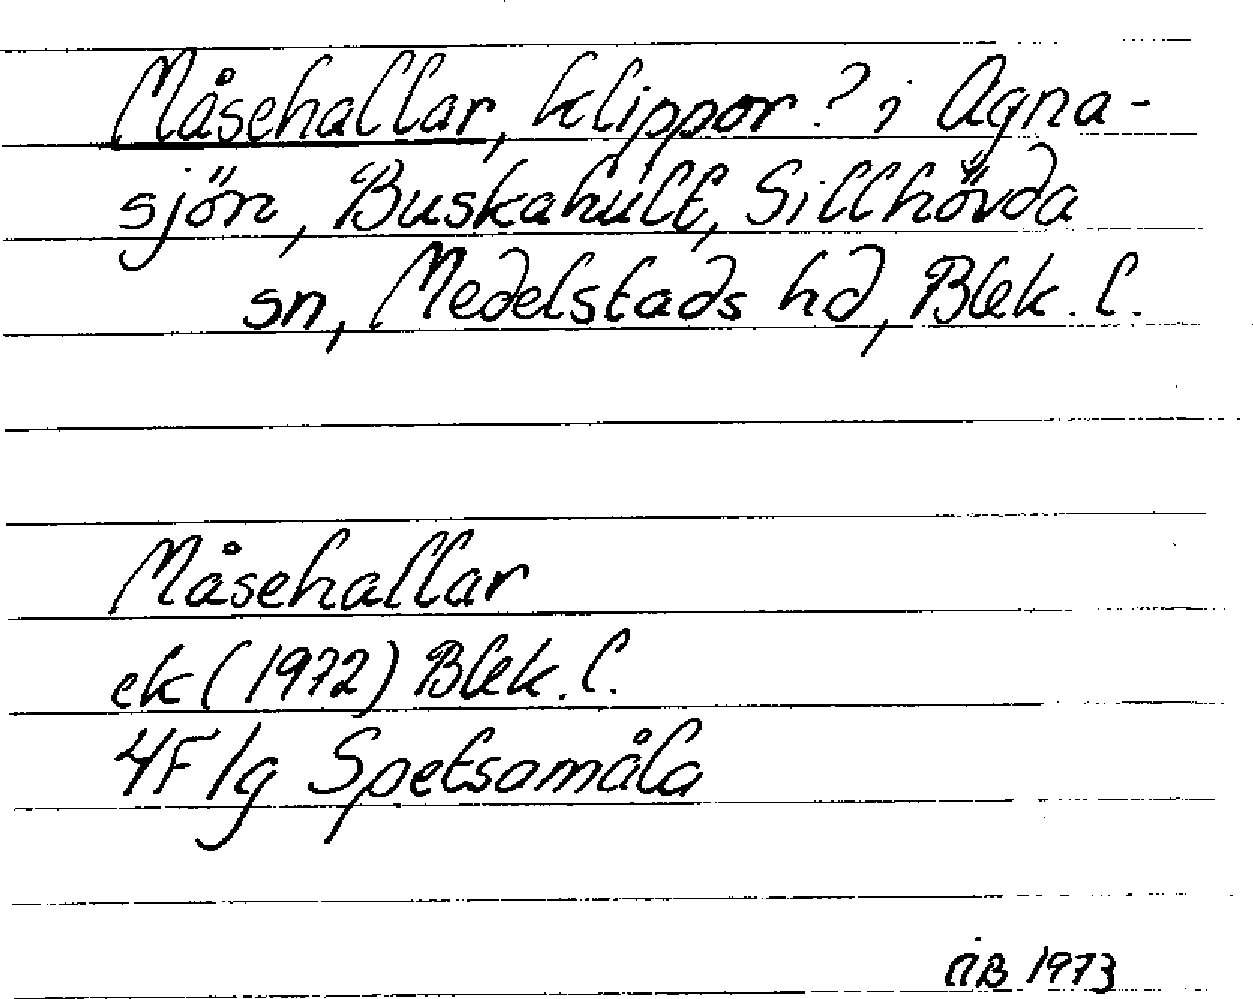 Måsehallar, klippor? i Agna-
sjön, Buskahult, Sillhövda
sn, Medelstads hd, Blek. l.
Måsehallar
ek (1972) Blek. l.
4F 1g Spetsamåla
1973